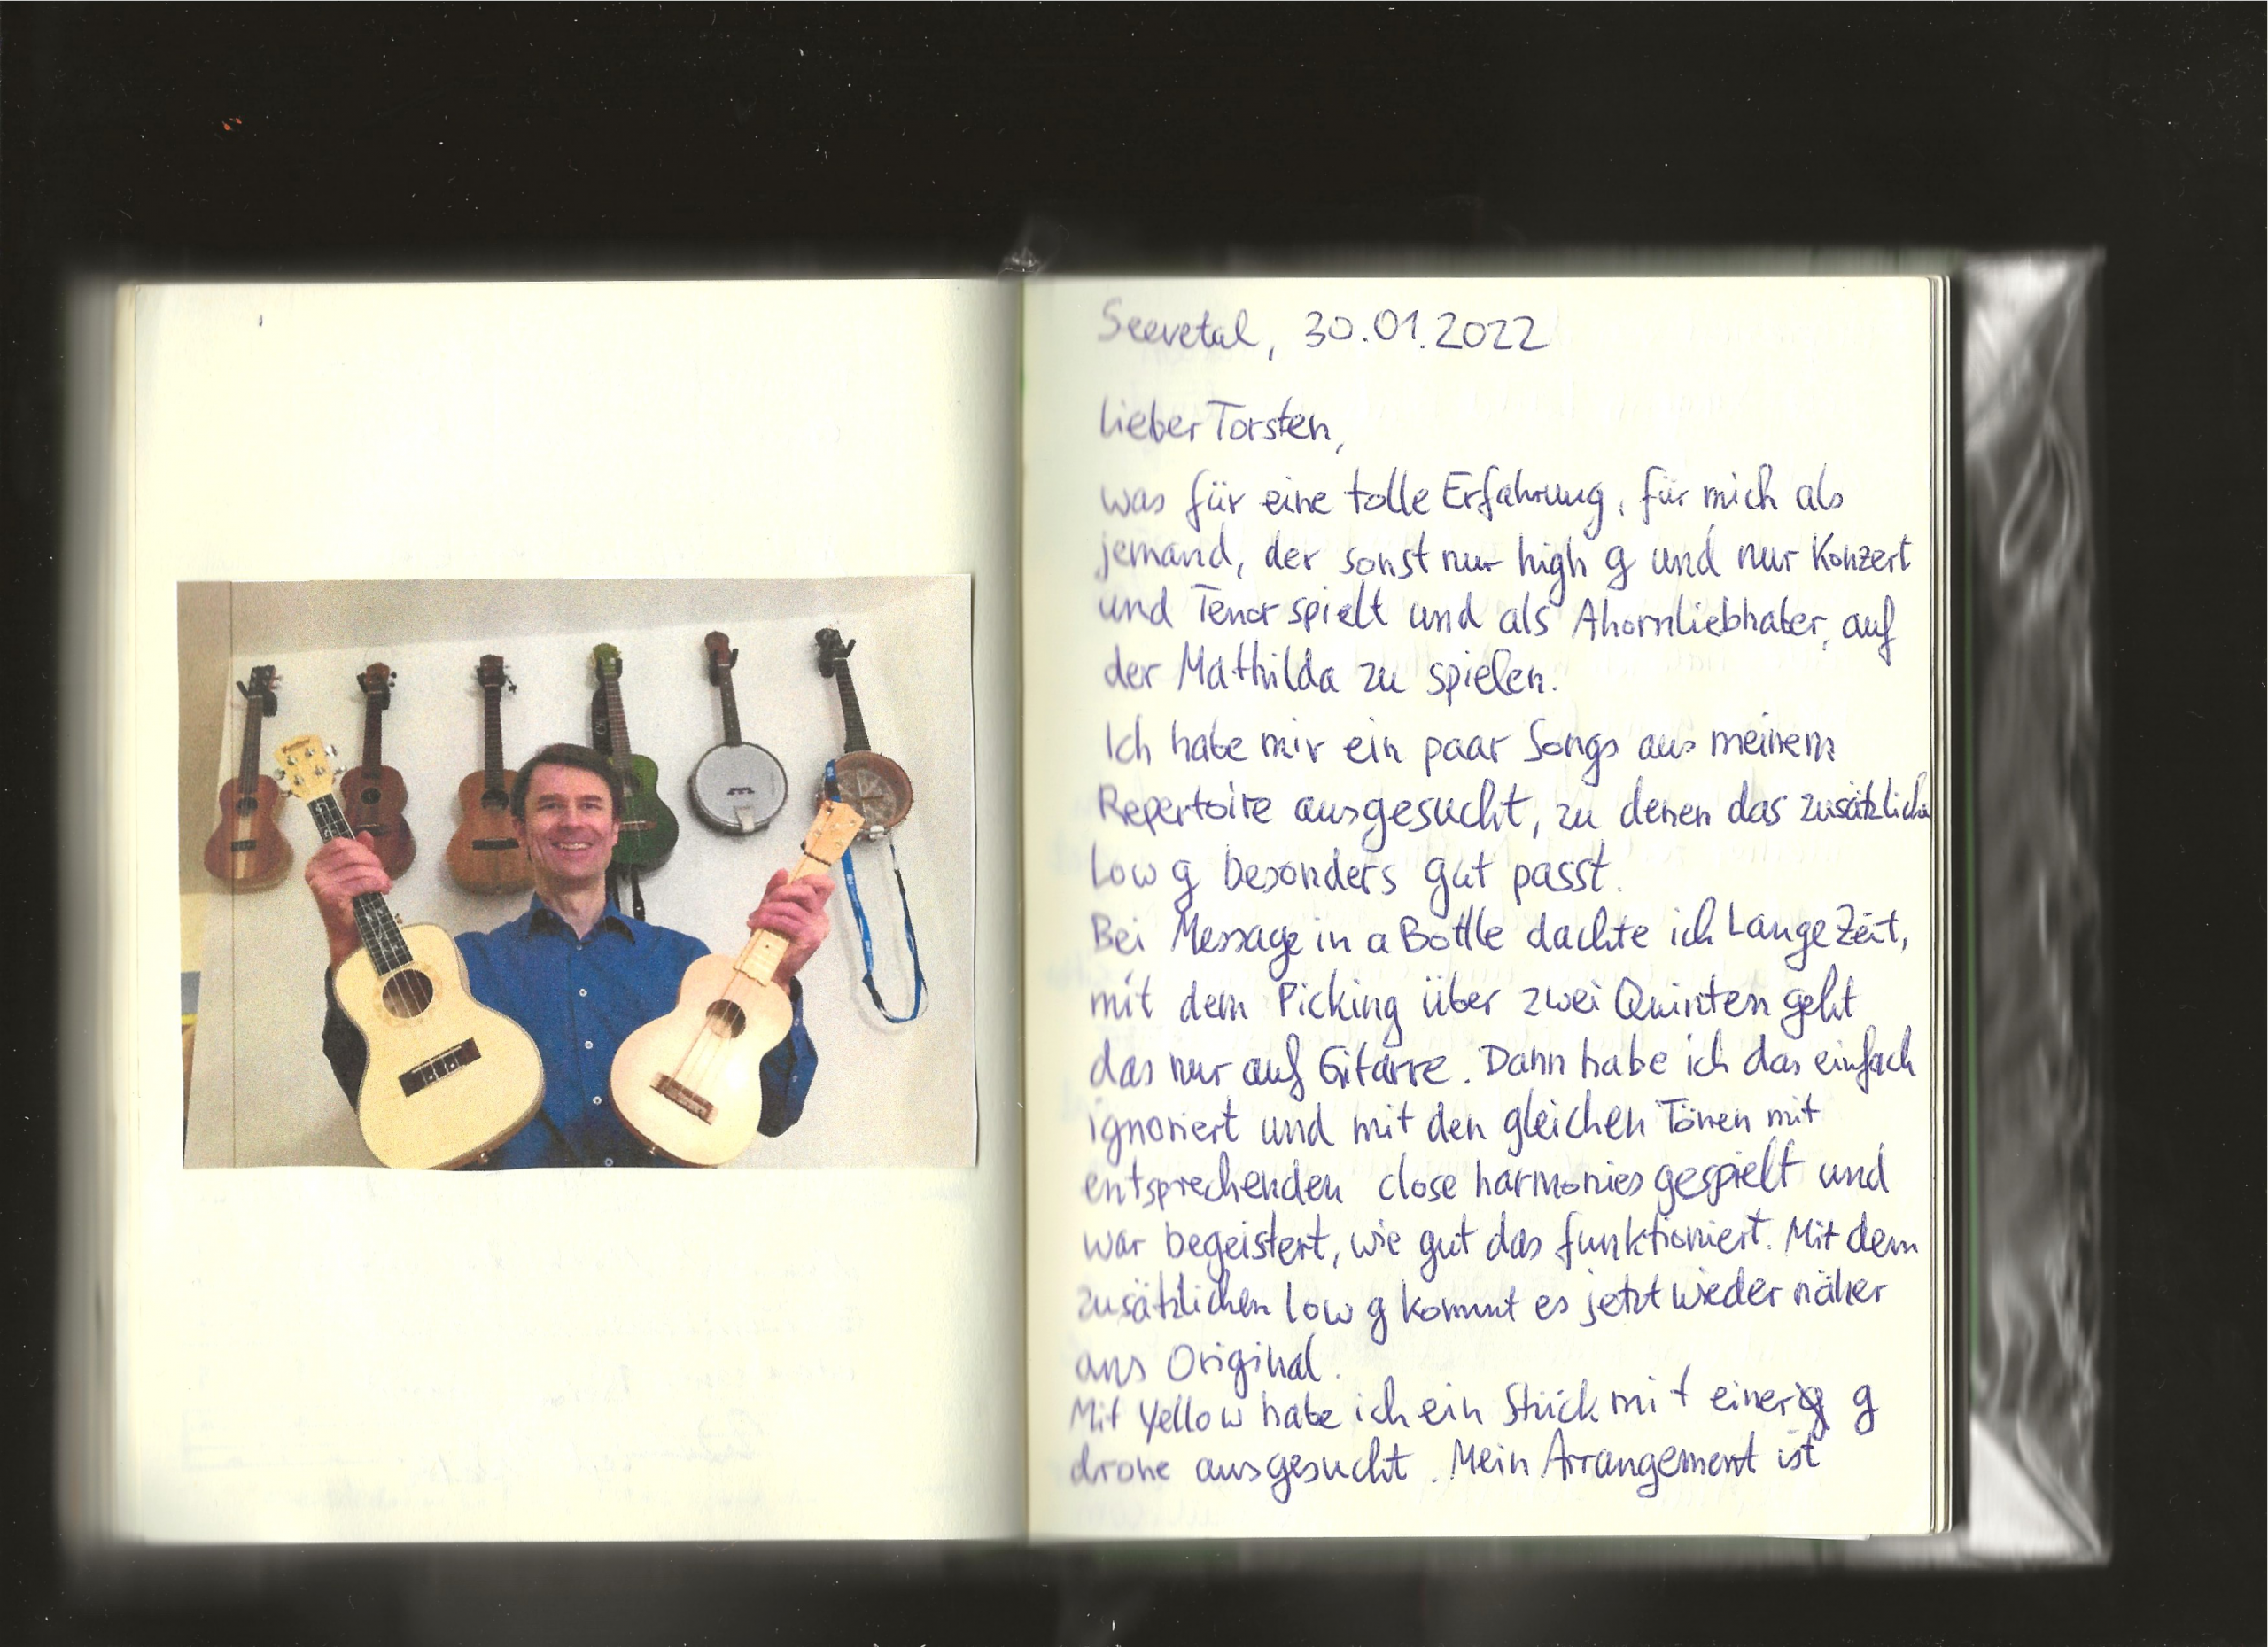 Seevetal, 30.01.2022
Lieber Torsten,
was für eine tolle Erfahrung, für mich als
jemand, der sonst nur high g und nur Konzert
und Tenor spielt und als Ahornliebhaber, auf
der Mathilda zu spielen.
Ich habe mir ein paar Songs aus meinem
Repertoire ausgesucht, zu denen das zusätzliche
low g besonders gut passt.
Bei Message in a Bottle dachte ich Lange Zeit,
mit dem Picking über zwei Quinten geht
das nur auf Gitarre. Dann habe ich das einfach
ignoriert und mit den gleichen Tönen mit
entsprechenden close harmonies gespielt und
war begeistert, wie gut das funktioniert. Mit dem
zusätzlichen low g kommt es jetzt wieder näher
ans Original.
Mit Yellow habe ich ein Stück mit einer g
drone ausgesucht. Mein Arrangement ist